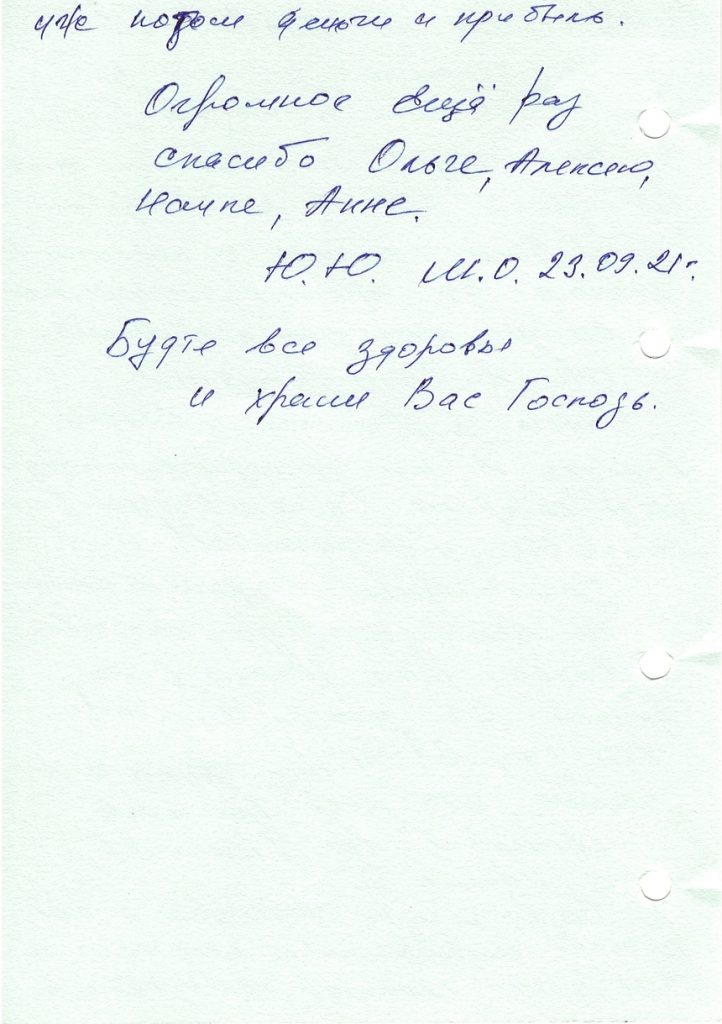 уже потом деньги и прибыль.
Огромное ещё раз
спасибо Ольге, Алексею,
Анне.
Ю.Ю. М.О. 23.09.21г.
Будте все здоровы
и храни Вас Господь.